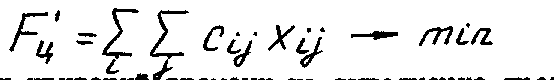 F'ц = ∑i ∑j cij xij → min